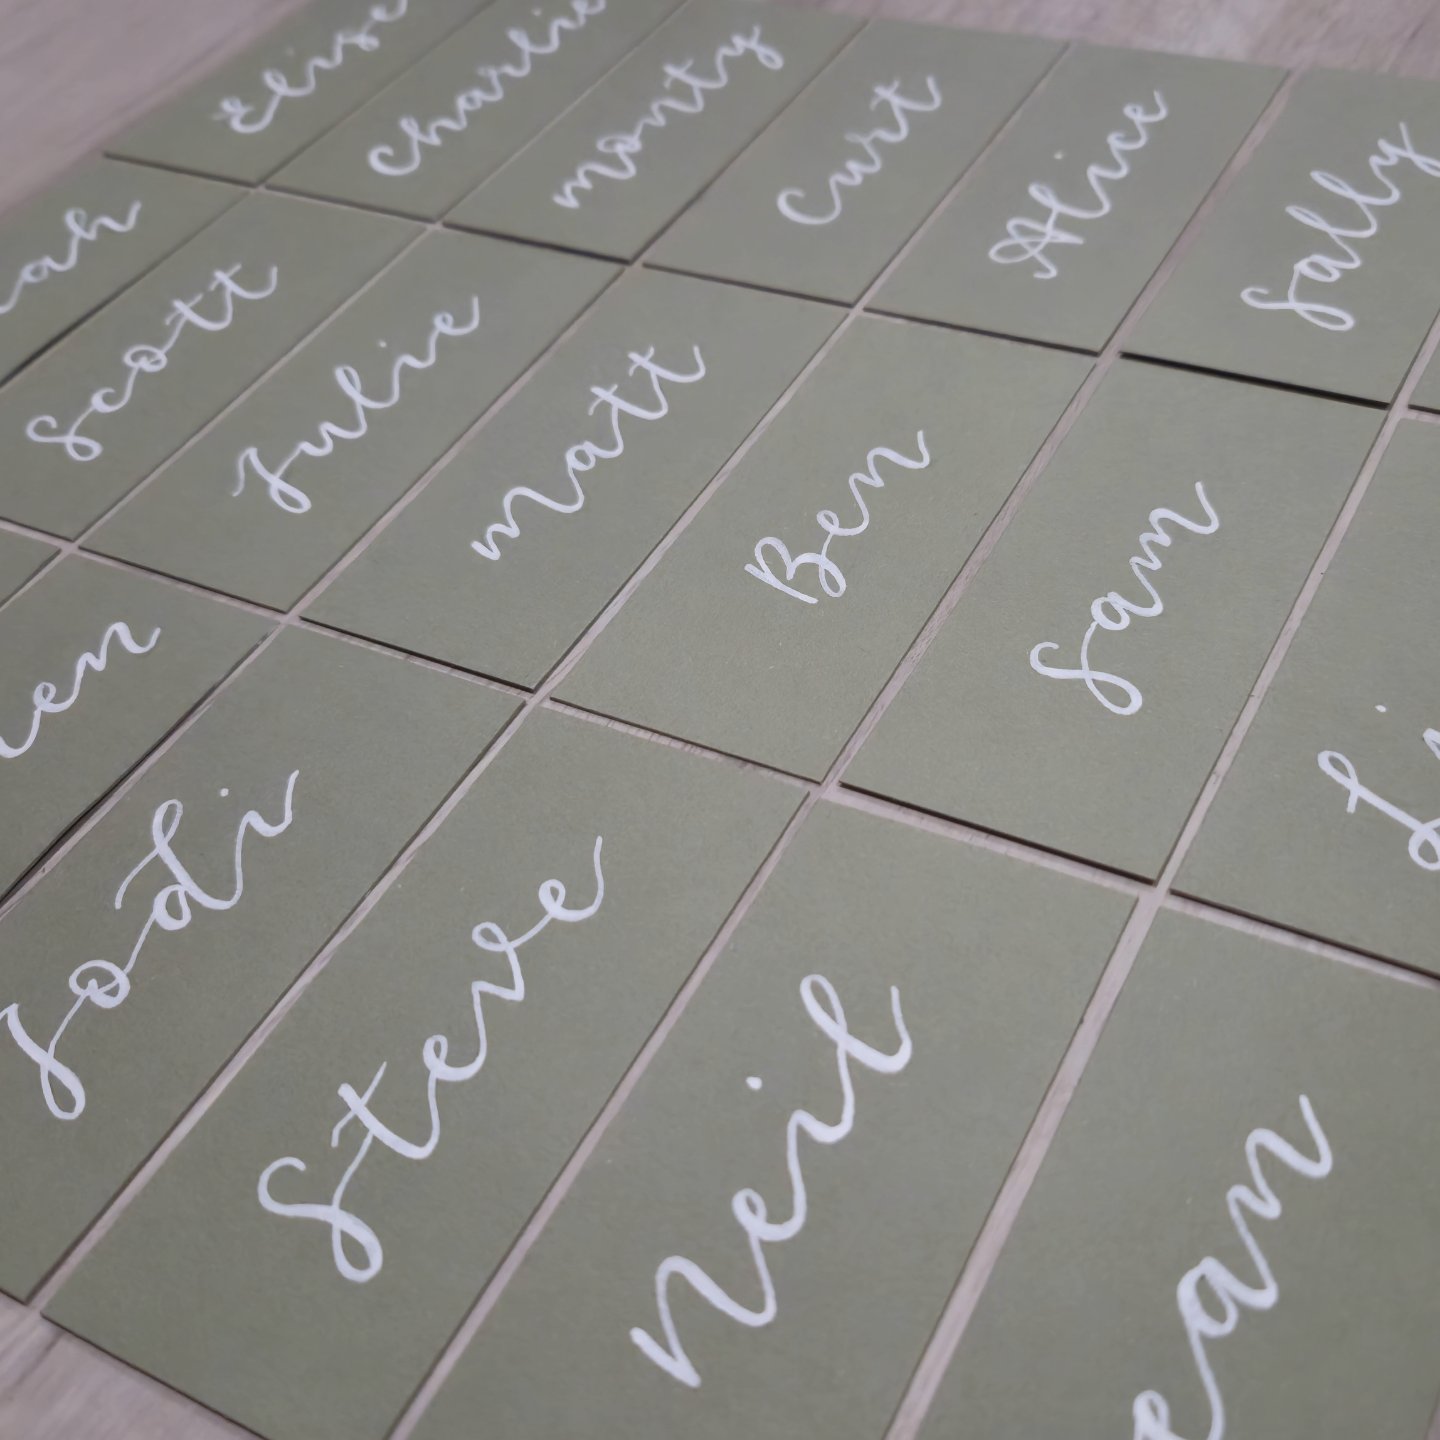 Elise
Charlie
Monty
Curt
Alice
Sally
ah
Scott
Julie
Matt
Ben
Sam
Li
en
Jodi
Steve
Neil
ean